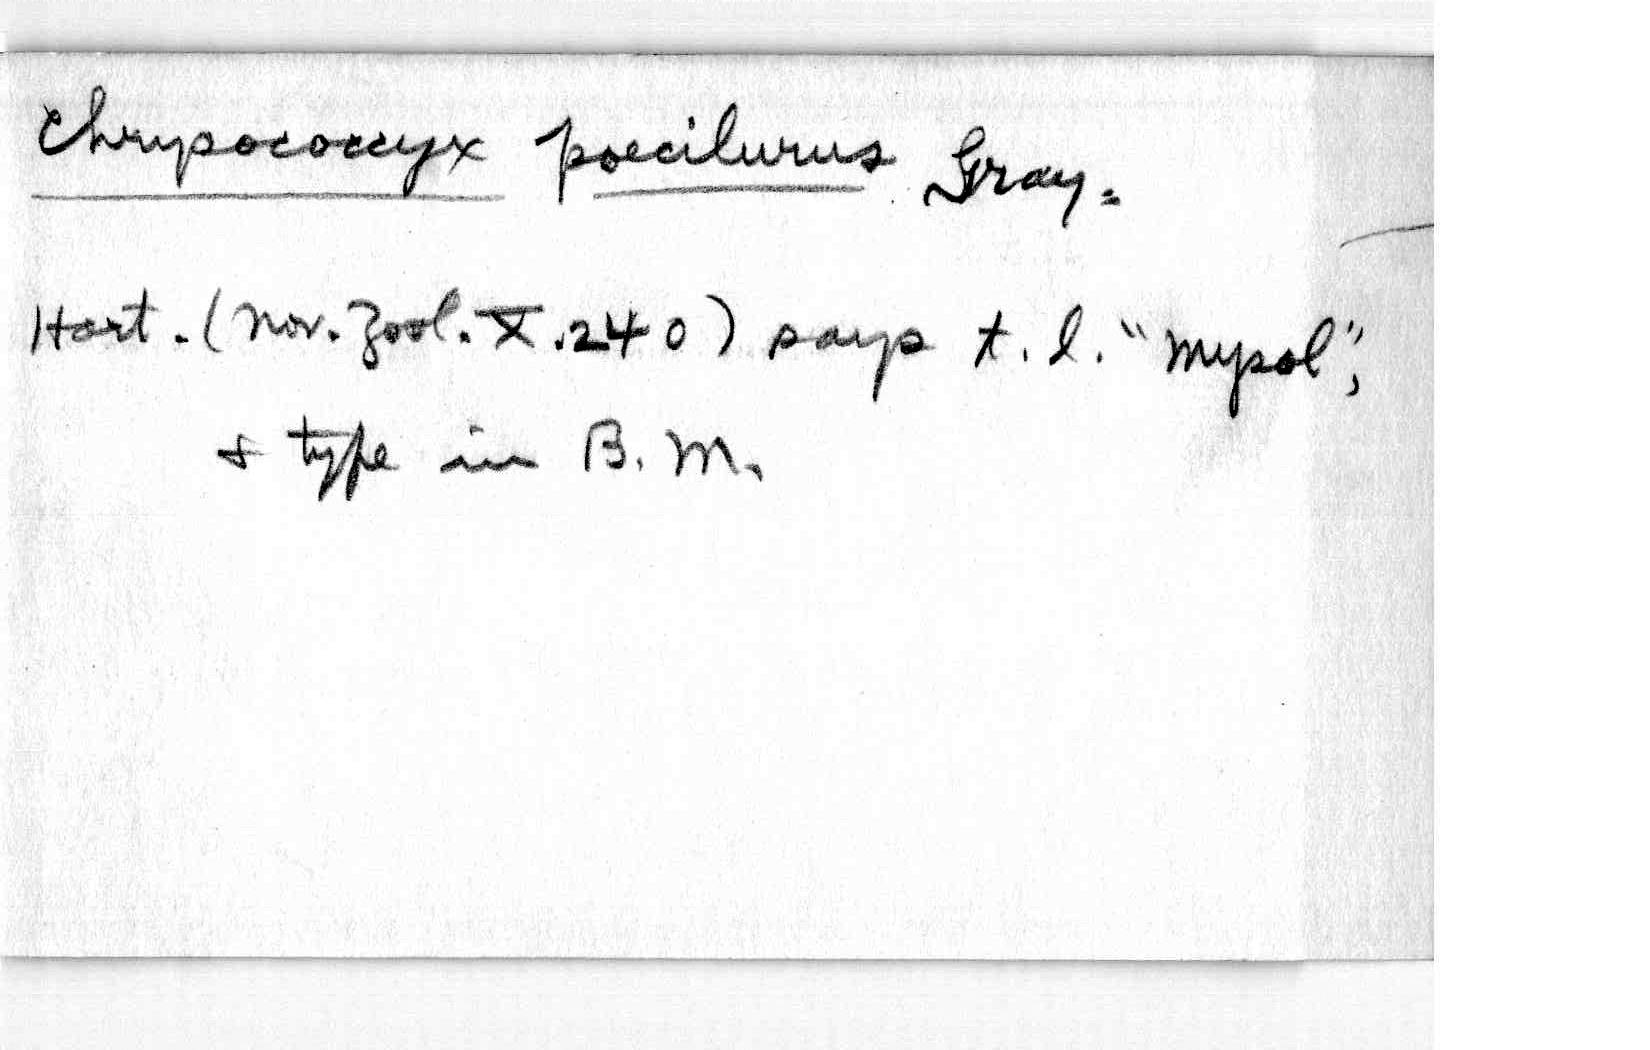 Chrysococcyx poecilurus Gray.
Hart. (Nov. Zool. X. 240) says t. l. "Mysol",
& type in B. M.